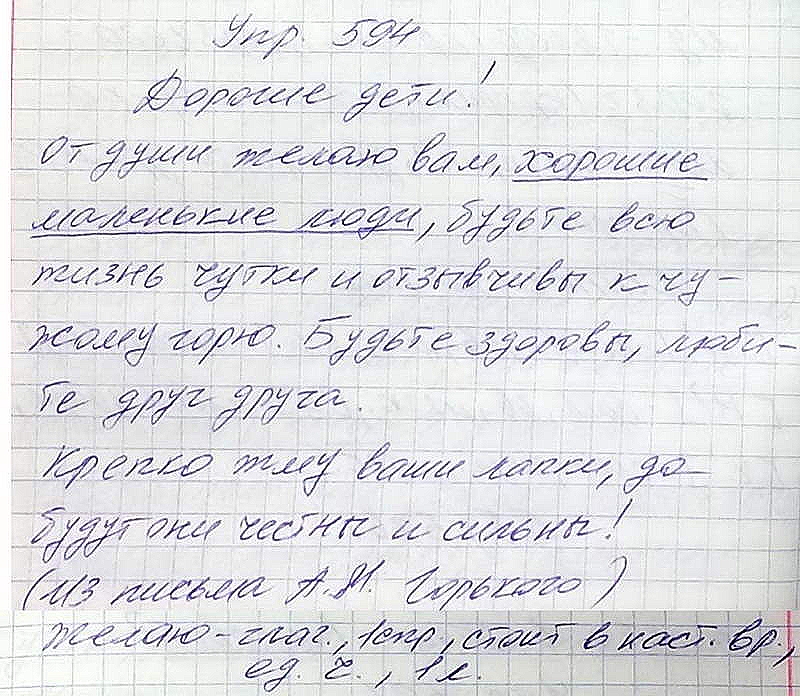 Упр. 594
Дорогие дети!
От души желаю вам, хорошие
маленькие люди, будьте всю
жизнь чутки и отзывчивы к чу-
жому горю. Будьте здоровы, люби-
те друг друга.
Крепко жму ваши лапки, да
будут они честны и сильны!
(Из письма А.М. Горького)
желаю-глаг., 1спр., стоит в наст. вр.,
ед. ч., 1 л.